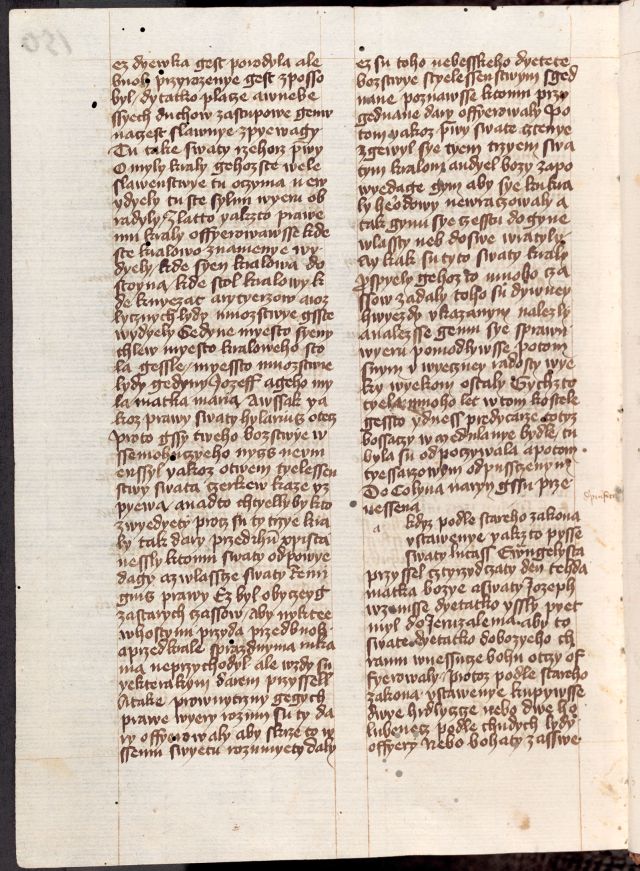 ez dyewka gest porodyla ale
buoh przyrozenye gest zposso
byl / dytatko placze awnebe
ssyech duchow zastupowe genu
nagest slawnye zpyewagy
Tu take swaty rzehorz prwy
O myly kraly gehozste wele
slawenstwye tu oczyma new
ydyely tu ste sylnu wyeru ob
radyly Zlatto yakzto prawe
mu kraly offyerowawsse kde
ste kralowo znamenye wy
dyely kde syen kralowa do
stoyna kde stol kralowy k
de knyezat a rytyerzow a roz
lycznych lydy mnozstwye gsste
wydyely Gedyne myesto syeny
chlew myesto kraloweho sto
la gessle / myessto mnozstwie
lydy gedyny Jozeff ageho my
la matka maria Awssak ya
koz prawy swaty hylarius otecz
proto gssy tweho bozstwye w
ssemohuczyeho nygs neum
enssyl yakoz otwem tyelessen
stwy swata czerkew kaze yz
pyewa anadto chtyellyby kto
zwyedyety procz su ty trzye kra
ly tak dary przedihu xpista
nessly kttomu swaty odpowye
dagy az wlassze swaty Remi
gius prawy Ez byl obyczeyg
zastarych czassow / Aby nyktee
whostynu przyda przed buoh
aprzed krale sprazdnyma ruka
ma neprzychodyl ale wzdy su
yekterakym darem przyssell
A take prownytrzny gegych
prawe wyery rozum su ty da
ry offyerowaly aby skrze to w
ssemu swyetu rozumyety daly
ez su toho nebesskeho dyetete
bozstwye styelessenstwym sged
nane poznawsse kttomu przy
gednane dary offyerowaly Po
tom yakoz prwy swate cztenye
zgewyl sye tyem trzyem swa
tym kralom andyel bozy zapo
wyedage gym aby sye kukra
ly heodowy newraczowaly a
tak gynu sye czesstu do gyne
wlassty neb do swe wratyly
Ay kak su tyto swaty kraly
prospyely gehoz to mnoho cza
ssow zadaly toho su dywney
hwyezdy vkazanym nalezly
a nalezsse gemu sye sprawn
wyeru pomodlywsse potom
snym v wyeczney radosty wye
ky wyekom ostaly Gychzto
tyela mnoho let w tom kostele
gessto ydness predycarze totyz
bossaczy w medulanye bydle / tu
byla su odpoczywala apotom
cyessarzowym odpusstzenym
Do Colyna narzyn gssu prze
nessena
kdyz podle stareho zakona
vstawenye yakz to pysse
swaty lucass Ewangelysta
przyssel cztyrzydczaty den tehda
matka bozye a swaty Jozeph
wzemsse dyetatko yssly pyet
myl do Jeruzalema aby to
swate dyetatko dobozyeho ch
ramu wnessucze bohu otczy of
fyerowaly / Protoz podle stareho
zakona vstawenye kupywsse
dwye hrdlyczcze nebo dwe ho
lubencz podle chudych lydy
offyery Nebo bohaty zasswe